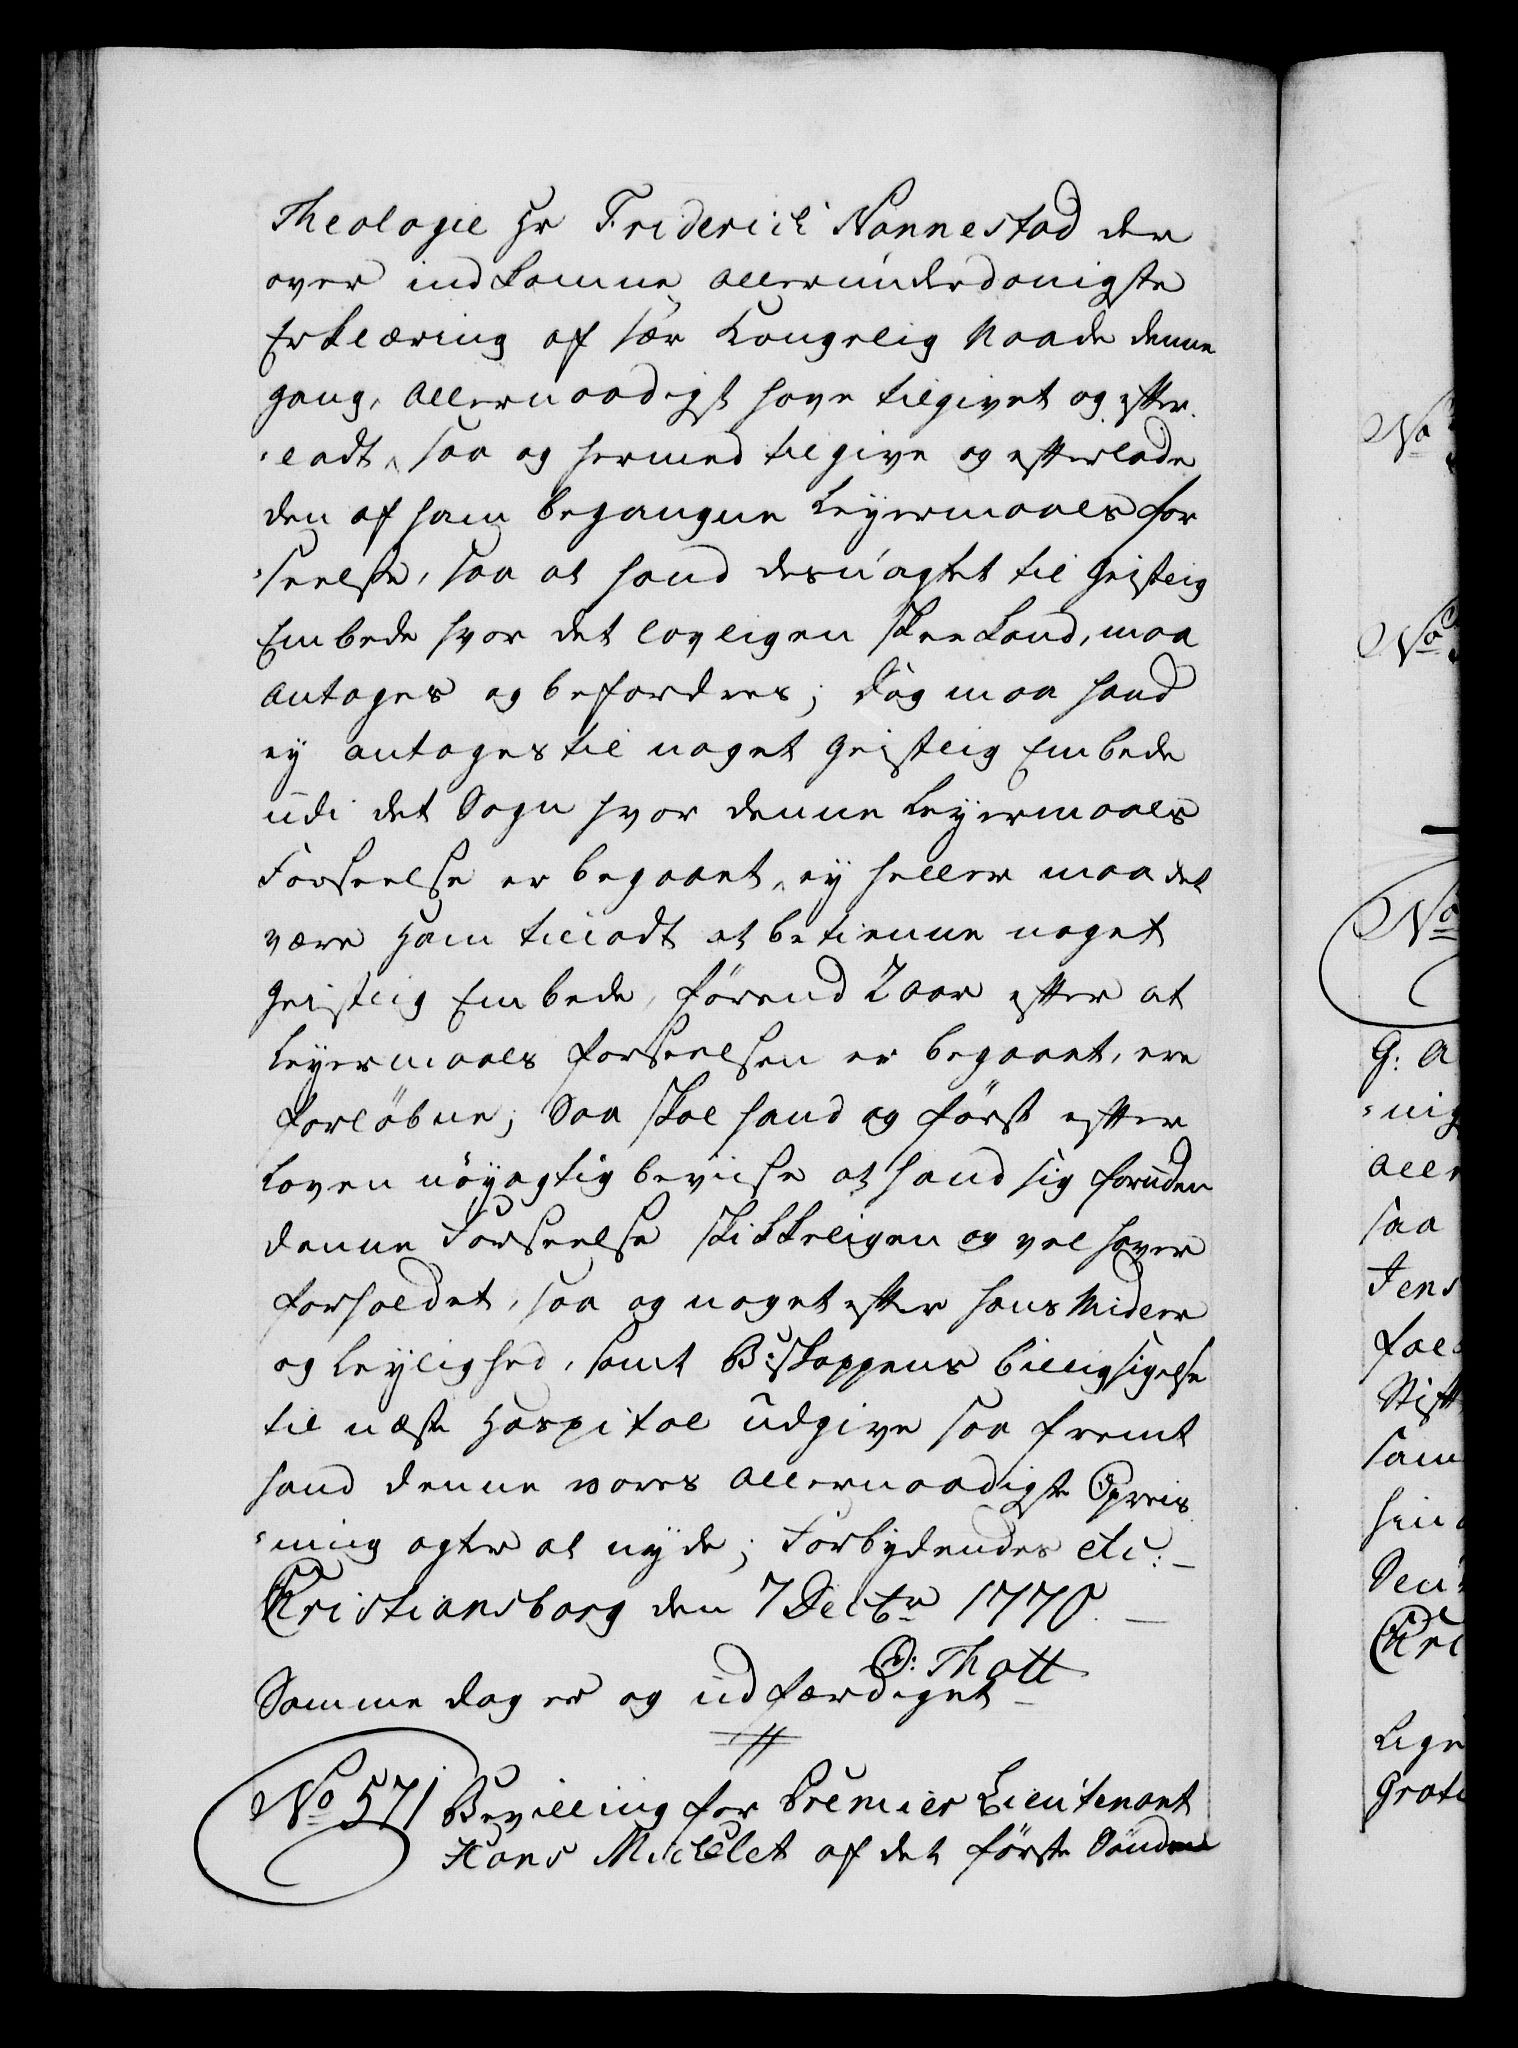 Theologie Hr Friderich Nannestad der
over indkomne allerunderdanigste
Erklæring af sær Kongelig Naade denne
gang, allernaadigst have tilgivet og efter¬
ladt, saa og hermed tilgive og efterlade
den af ham begangne Leyermaals For
seelse, saa at hand desuagtet til Geistlig
Embede hvor det lovligen skee kand, maa
antages og befordres; dog maa hand
ey antages til noget Geistlig Embede
udi det Sogn hvor denne Leyermaals
Forseelse er begaaet, ey heller maa det
være ham tilladt at betienne noget
Geistlig Embede, förend 2 aar efter at
Leyermaals forseelsen er begaaet, ere
forlöbne; Saa skal hand og först efter
Loven nöyagtig beviise at hand sig foruden
denne Forseelse skikkeligen og vel haver
forholdet, saa og noget efter hans Midler
og Leylighed, samt Biskoppens billigsigelse
til næste Hospital udgive saa fremt
hand denne vores allernaadigste Opreis
ning agter at nyde; Forbydendes etc:
Christiansborg den 7 Decbr 1770.
O: Thott
Samme dag er og udfærdiget
No 571 Bevilling for Premier Lieutenant
Hans Michelet af det förste Sönden
No
No
No
G: A
nig
aller
saa
Jens
fal
Stift
sam
hin
Sen
Chri
Lige
Grati